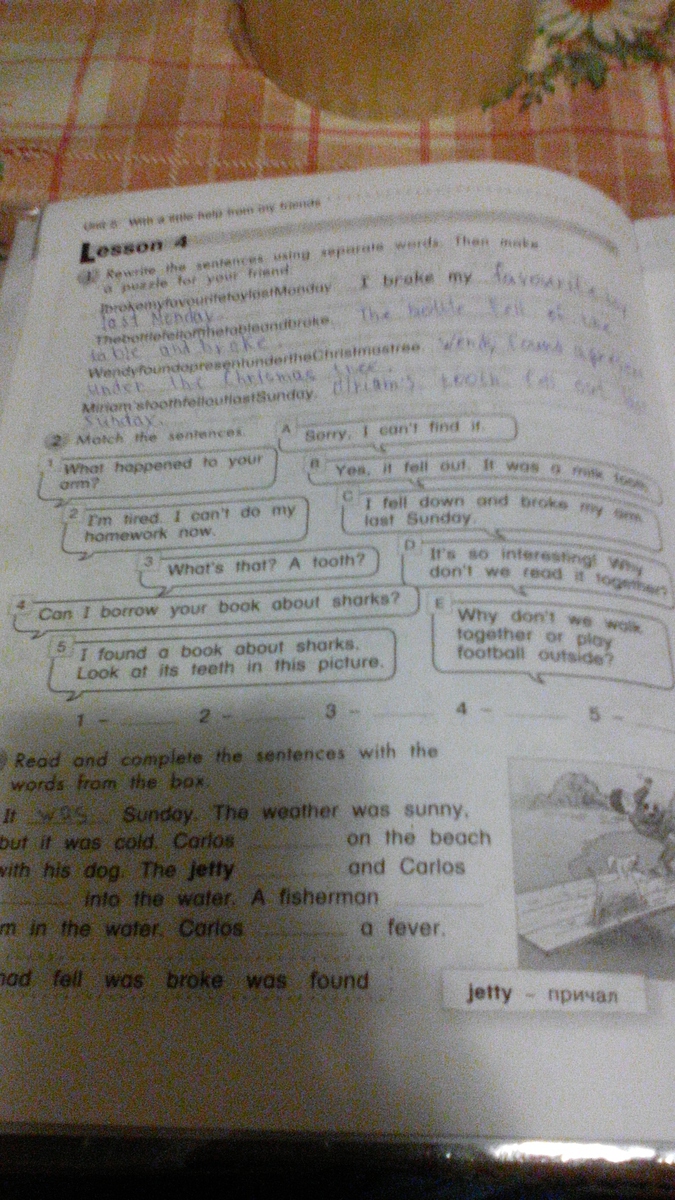 Unit 5. With a little help from my friends
Lesson 4
1 Rewrite the sentences using separate words. Then make
a puzzle for your friend.
IbrokemyfavouritetoylastMonday. I broke my favourite toy
last Monday.
Thebottlefelloffthetableandbroke. The bottle fell of the
table and broke.
WendyfoundapresentundertheChristmastree. Wendy found a present
under the Chrismas tree.
Miriam'stoothfelloutlastSunday. tooth fell out last
Sunday.
2 Match the sentences.
A Sorry, I can't find it.
1 What happened to your
arm?
B Yes, it fell out. It was a milk tooth.
2 I'm tired. I can't do my
homework now.
C I fell down and broke my arm
last Sunday.
3 What's that? A tooth?
D It's so interesting! Why
don't we read it together?
4 Can I borrow your book about sharks?
E Why don't we walk
together or play
football outside?
5 I found a book about sharks.
Look at its teeth in this picture.
1 – 2 – 3 – 4 – 5 –
Read and complete the sentences with the
words from the box.
It was Sunday. The weather was sunny,
but it was cold. Carlos on the beach
with his dog. The jetty and Carlos
into the water. A fisherman
m in the water. Carlos a fever.
had fell was broke was found
jetty – причал